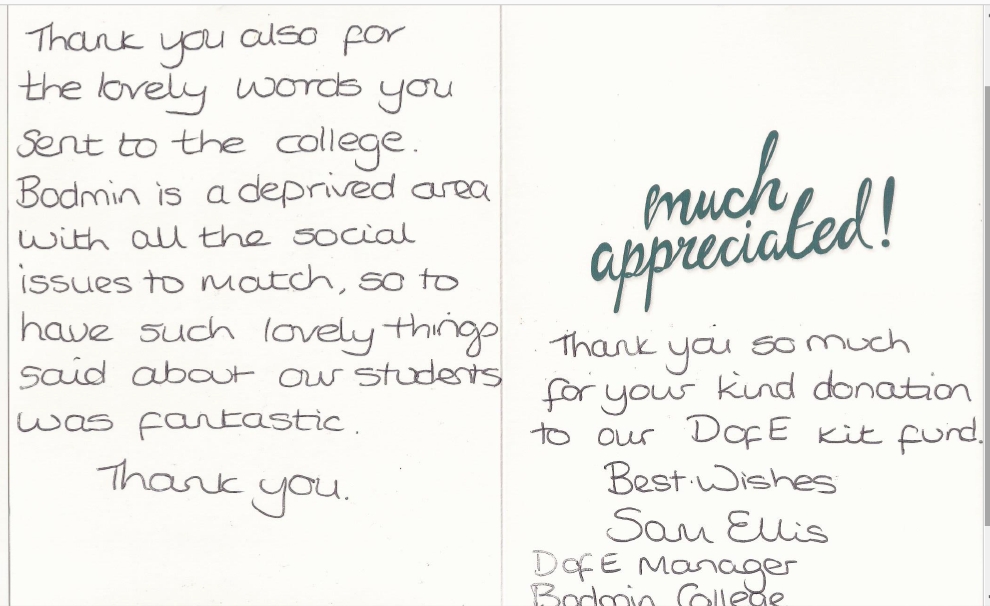 Thank you also for
the lovely words you
sent to the college.
Bodmin is a deprived area
with all the social
issues to match, so to
have such lovely things
said about our students
was fantastic.
Thank you.
much
appreciated!
Thank you so much
for your kind donation
to our DofE kit fund.
Best Wishes
Sam Ellis
DofE Manager
Bodmin College